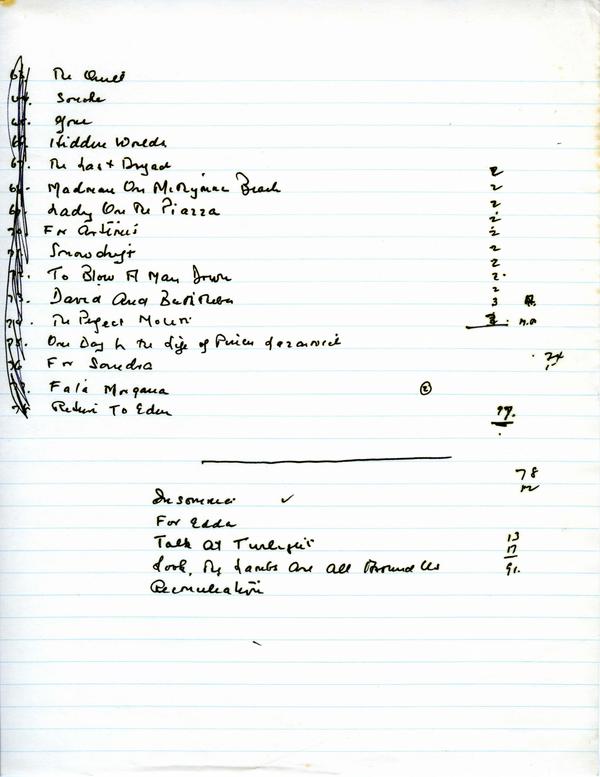 63. The Quest
64. Smoke
65. Gone
66. Hidden Worlds
67. The Last Dryad 2
68. Madman On McKymac Beach 2
69. Lady On The Piazza 2
70. For Artemis 2
71. Snowdrift 2
72. To Blow A Man Down 2.
73. David And Bathsheba 3
74. The Perfect Moment
75. One Day In the Life of Prince
76. For Sandra 24
77. Fata Morgana 2
78. Return To Eden 77.
78
Insomnia ✓
For Edda
Talk At Twilight 13
Look, My Lambs Are All Around Us 17
91.
Reconciliation